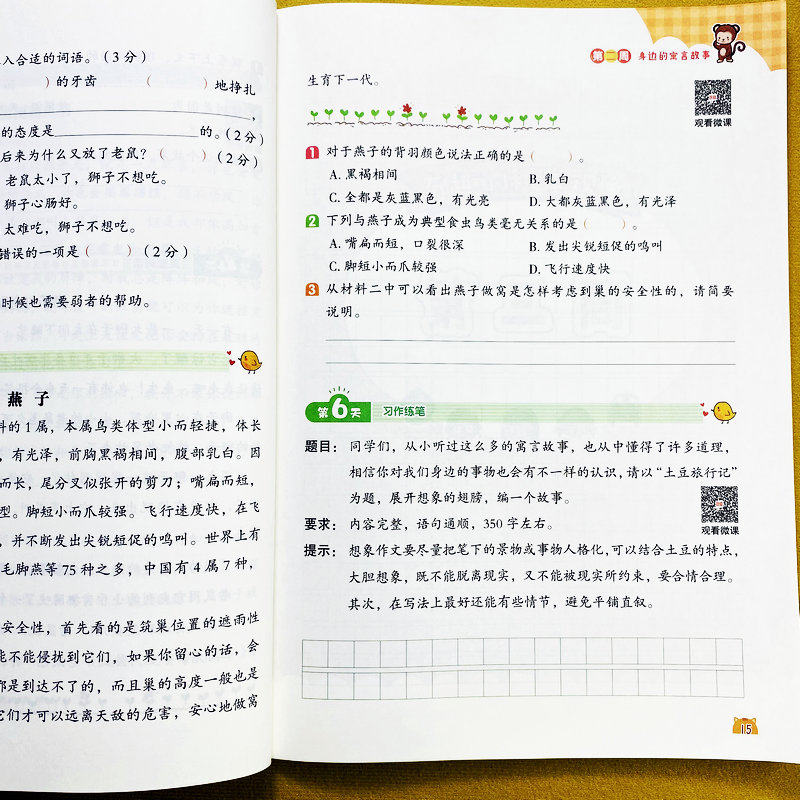 入合适的词语。(3分)
)的牙齿 ( )地挣扎
,
的态度是 的。(2分)
后来为什么又放了老鼠？( )(2分)
老鼠太小了，狮子不想吃。
狮子心肠好。
太难吃，狮子不想吃。
错误的一项是( )(2分)
时候也需要弱者的帮助。
燕子
科的1属，本属鸟类体型小而轻捷，体长
，有光泽，前胸黑褐相间，腹部乳白。因
而长，尾分叉似张开的剪刀；嘴扁而短，
型。脚短小而爪较强。飞行速度快，在飞
，并不断发出尖锐短促的鸣叫。世界上有
毛脚燕等75种之多，中国有4属7种，
安全性，首先看的是筑巢位置的遮雨性
能不能侵扰到它们，如果你留心的话，会
都是到达不了的，而且巢的高度一般也是
它们才可以远离天敌的危害，安心地做窝
第二周 身边的寓言故事
生育下一代。
观看微课
1 对于燕子的背羽颜色说法正确的是( )。
A.黑褐相间 B.乳白
C.全都是灰蓝黑色，有光亮 D.大都灰蓝黑色，有光泽
2 下列与燕子成为典型食虫鸟类毫无关系的是( )。
A.嘴扁而短，口裂很深 B.发出尖锐短促的鸣叫
C.脚短小而爪较强 D.飞行速度快
3 从材料二中可以看出燕子做窝是怎样考虑到巢的安全性的，请简要
说明。
第6天 习作练笔
题目：同学们，从小听过这么多的寓言故事，也从中懂得了许多道理，
相信你对我们身边的事物也会有不一样的认识，请以“土豆旅行记”
为题，展开想象的翅膀，编一个故事。
要求：内容完整，语句通顺，350字左右。
观看微课
提示：想象作文要尽量把笔下的景物或事物人格化，可以结合土豆的特点，
大胆想象，既不能脱离现实，又不能被现实所约束，要合情合理。
其次，在写法上最好还能有些情节，避免平铺直叙。
15